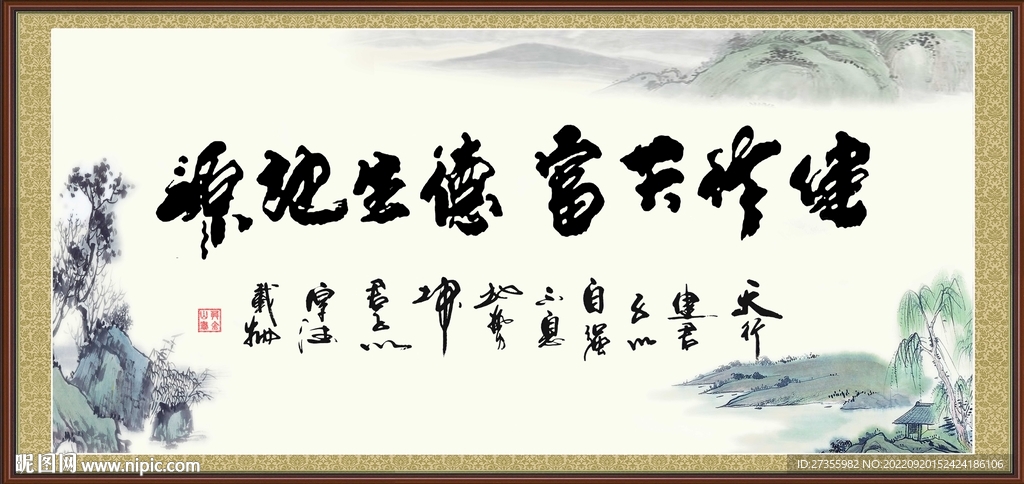 健富德生地源
天行
建君
子以
自強
不息
地勢
坤
君子以
厚德
載物
昵图网 www.nipic.com
ID:27355982 NO:20220920152424186106